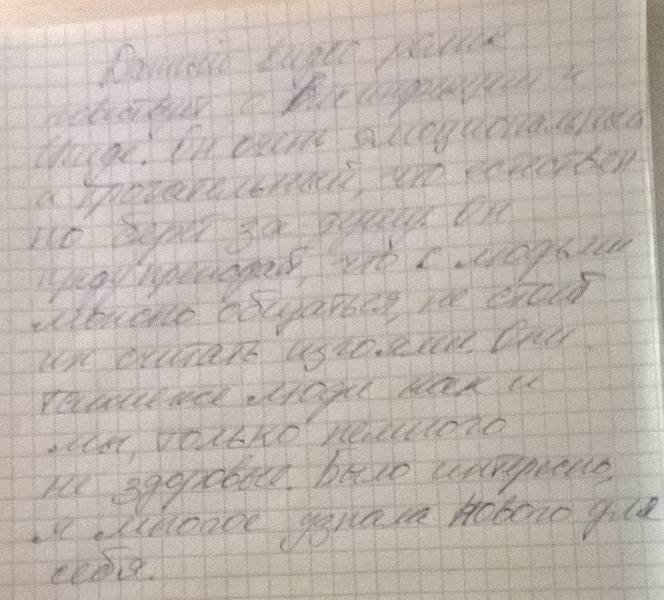 Данный видео ролик
повествует о ВИЧ инфекции и
СПИДе. Он очень эмоциональный
и трогательный, что естествен
но берет за душу. Он
что с людьми
можно общаться, не стоит
их считать изгоями. Они
такие же люди как и
мы, только немного
не здоровые. Было интересно,
я многое узнала нового для
себя.